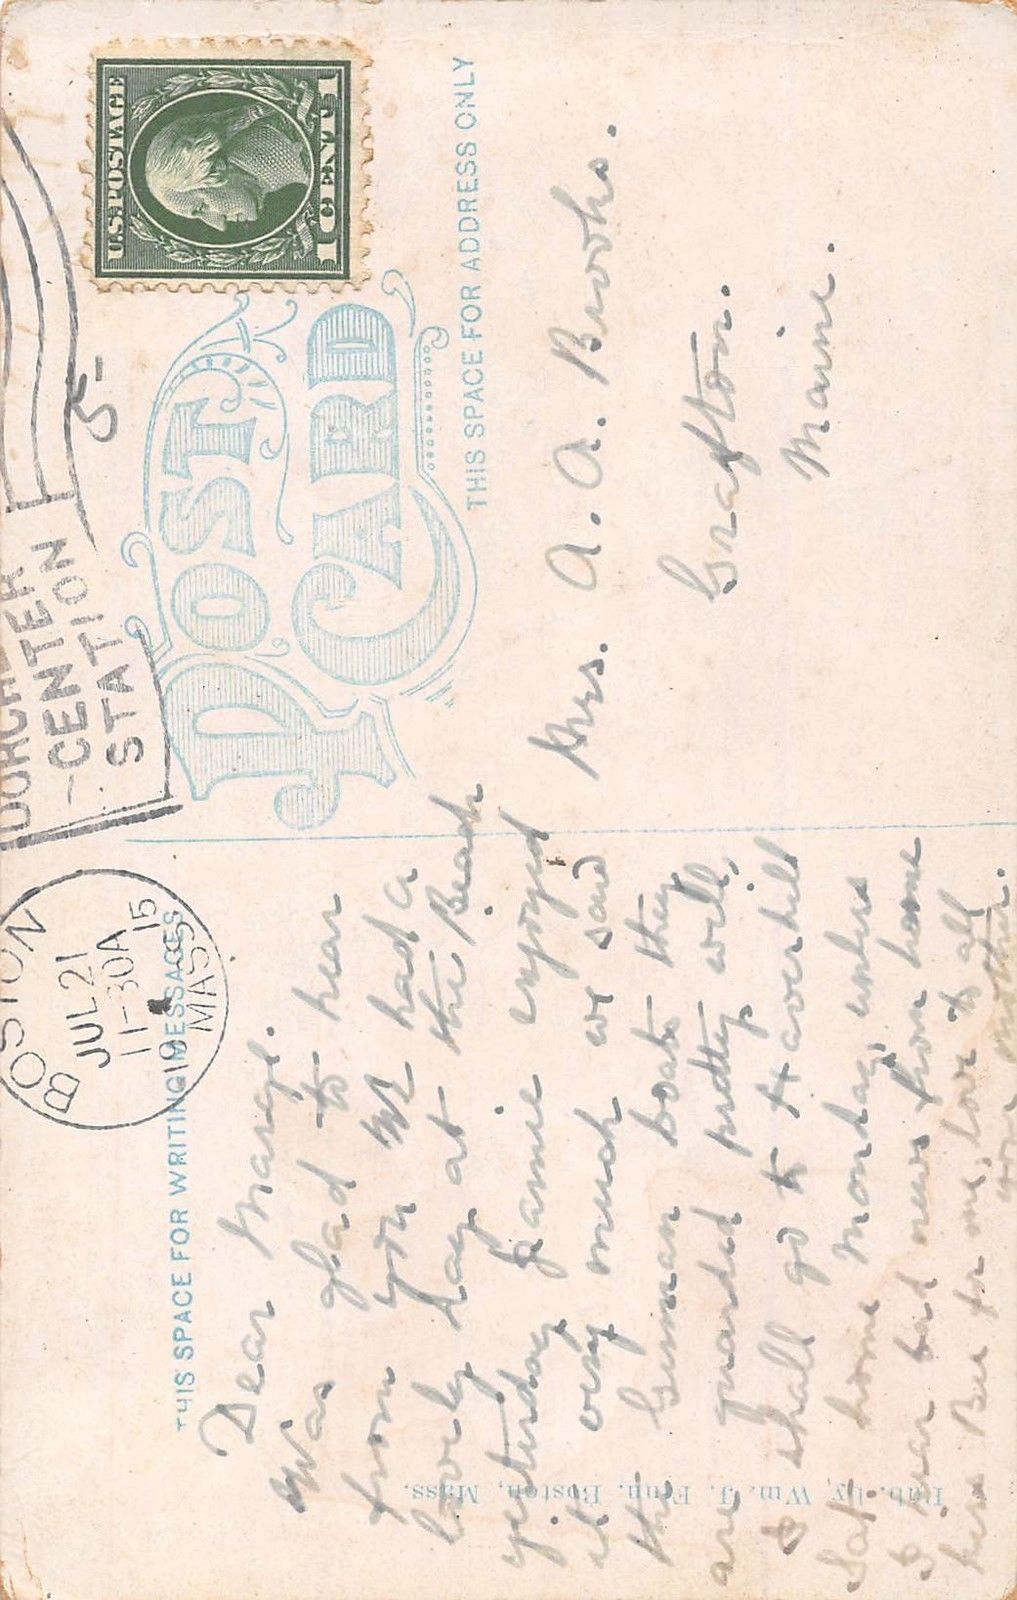 U.S. POSTAGE
1 CENT 1
POST CARD
CENTER
STATION
5-
BOSTON
JUL 21
11-30A
1915
MASS.
THIS SPACE FOR WRITING MESSAGES
THIS SPACE FOR ADDRESS ONLY
Dear Marge.
Was glad to hear
from you We had a
lovely day at the Beach
yesterday Jamie enjoyed
it very much we saw
the German boats they
are guarded pretty well,
I shall go to Haverhill
Sat. home Monday, unless
I hear bad news from home
kiss Bee for me, love to all
your mother.
Mrs. A. A. Brooks.
Grafton.
Maine.
Pub. by Wm. J. Finn, Boston, Mass.